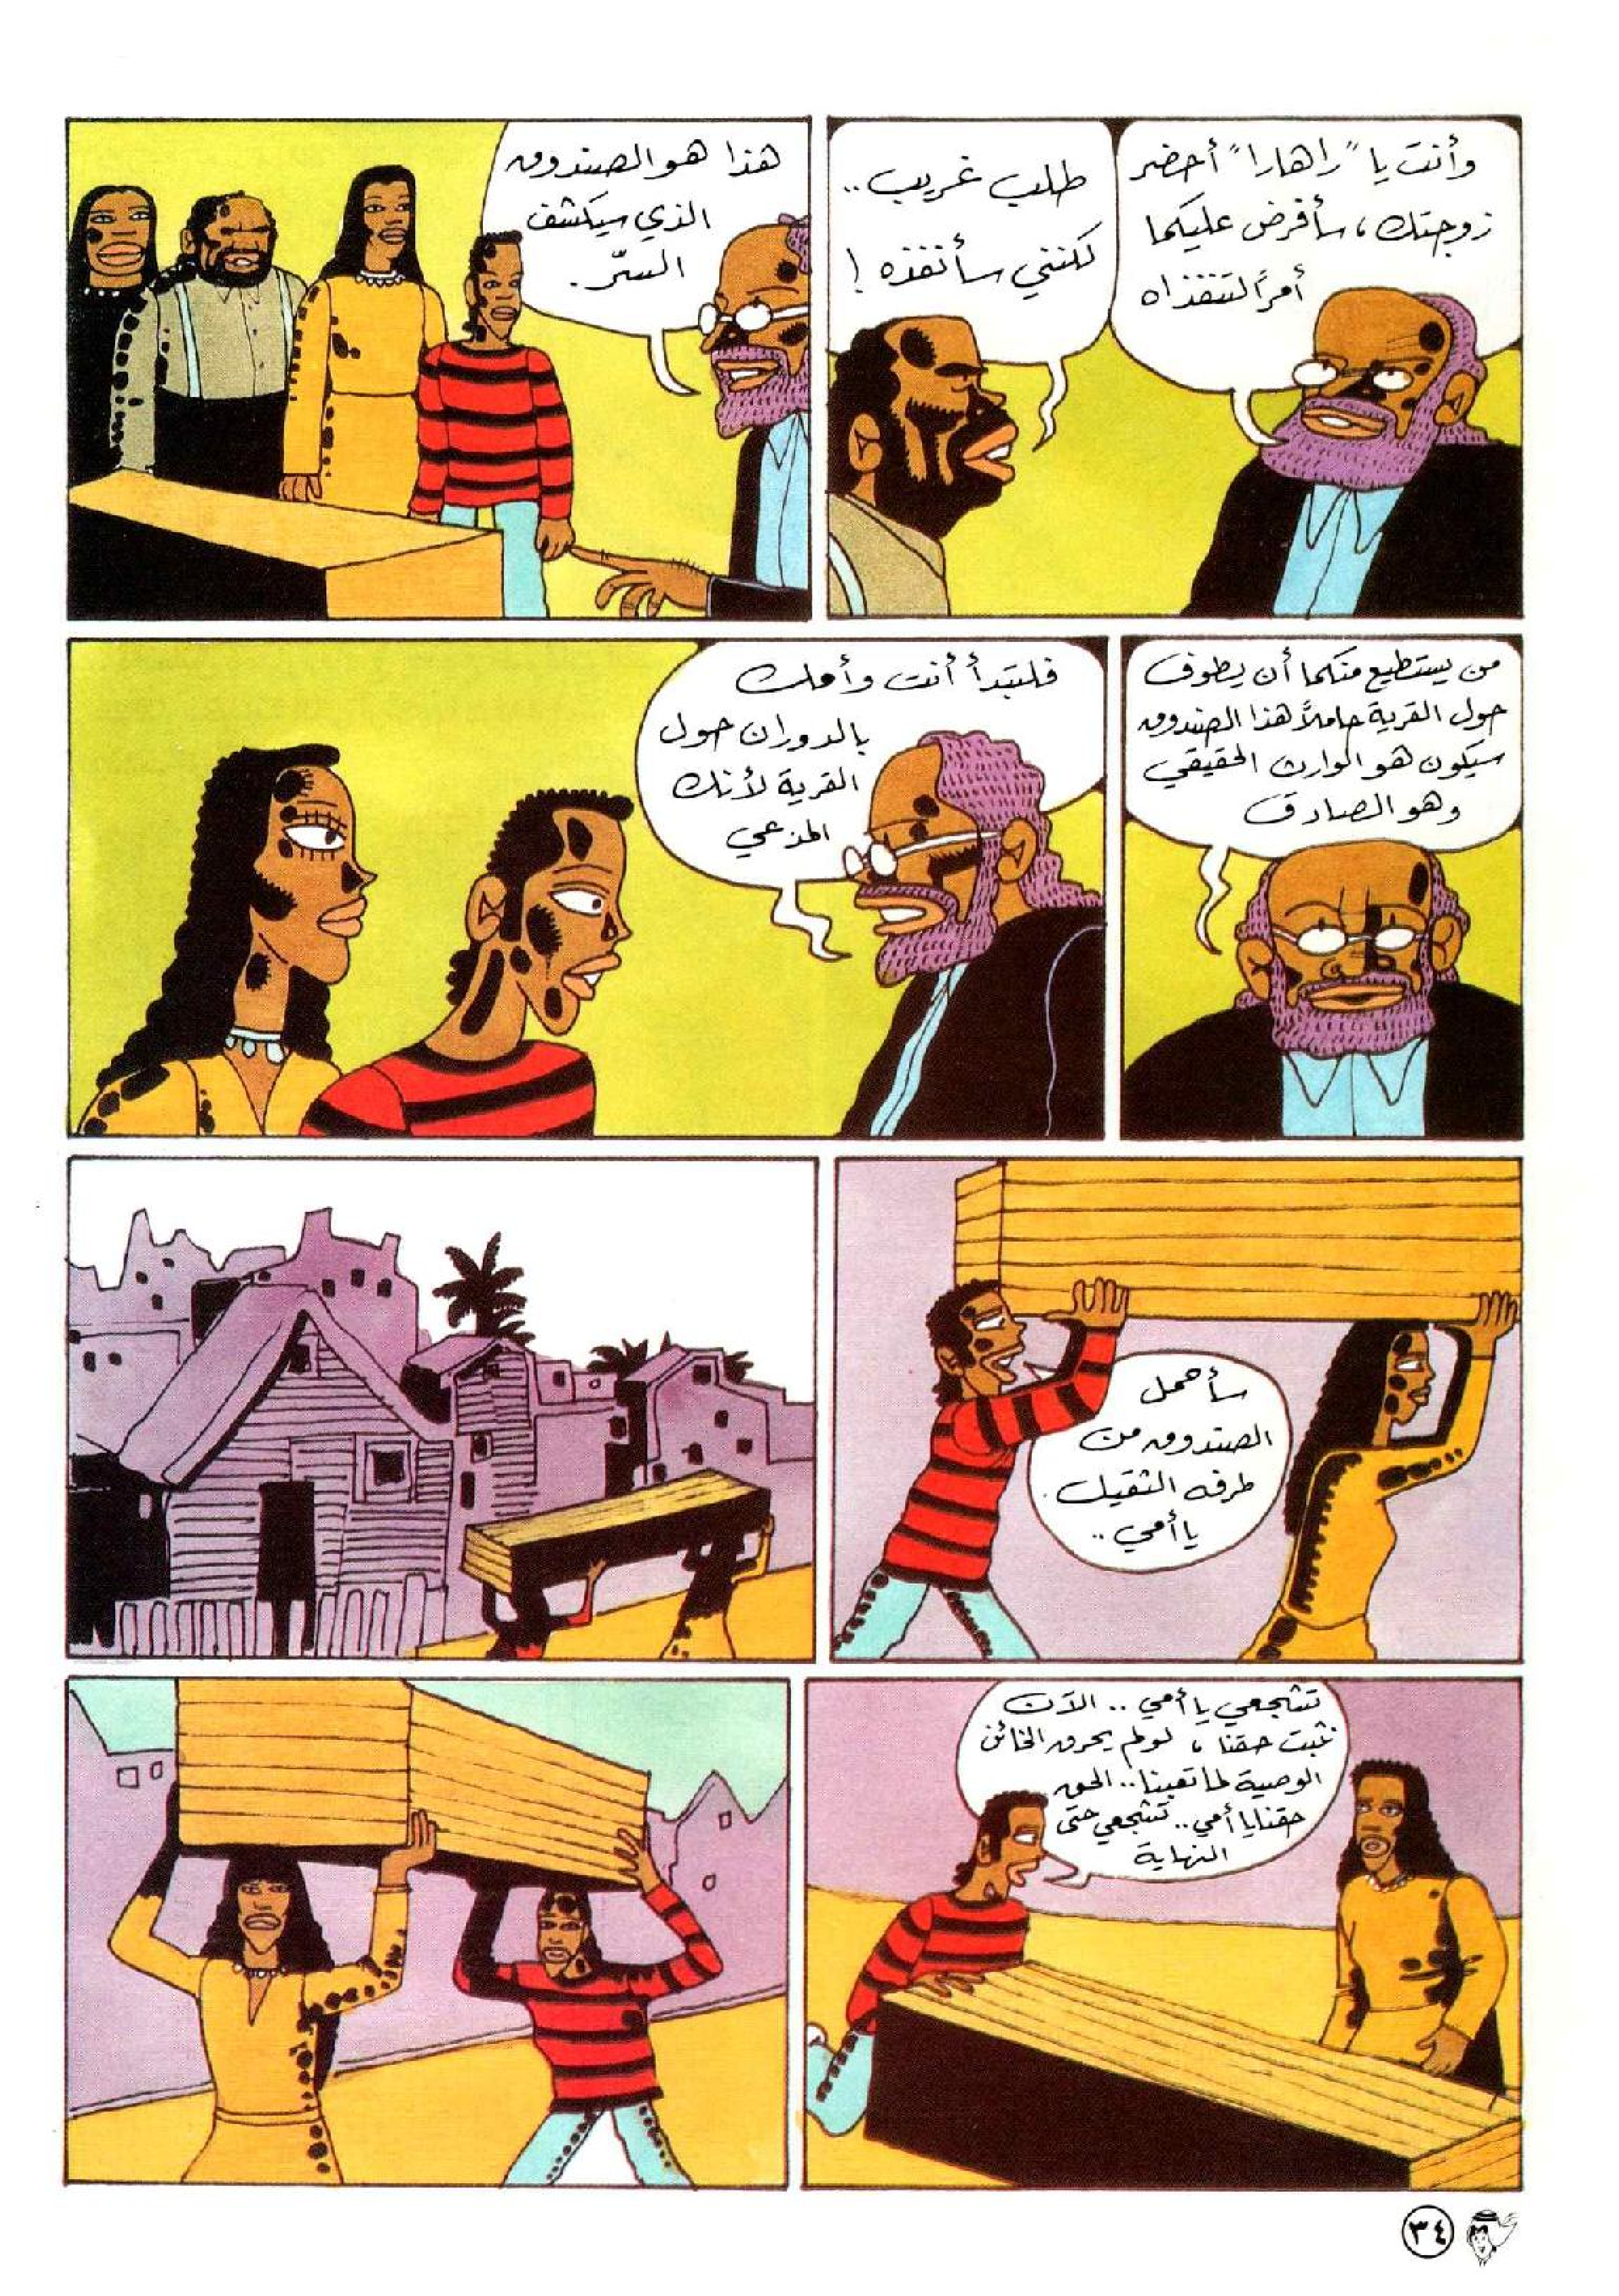 وأنت يا "راهارا" أحضر
زوجتك، سأفرض عليكما
أمراً لتنفذاه
طلب غريب..
لكنني سأنفذه!
هذا هو الصندوق
الذي سيكشف
السرّ.
من يستطيع منكما أن يطوف
حول القرية حاملاً هذا الصندوق
سيكون هو الوارث الحقيقي
وهو الصادق
فلتبدأ أنت وأمك
بالدوران حول
القرية لأنك
المدعي
سأحمل
الصندوق من
طرفه الثقيل
يا أمي..
تشجعي يا أمي.. الآن
نثبت حقنا، لو لم يحرق الخائن
الوصية لما تعبنا.. الحق
حقنا يا أمي.. تشجعي حتى
النهاية
٣٤